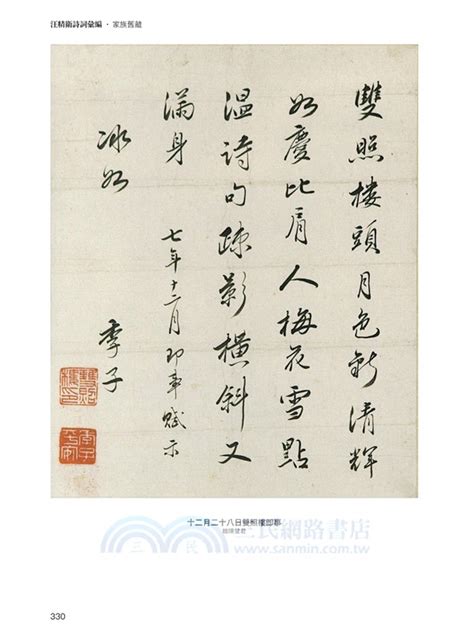 汪精衛詩詞彙編・家族舊藏
雙照樓頭月色新清輝
如慶比肩人梅花雪點
溫詩句疎影橫斜又
滿身 七年十二月即事賦示
冰如 季子
十二月二十八日雙照樓即事
贈陳璧君
三民網路書店
三民
www.sanmin.com.tw
330